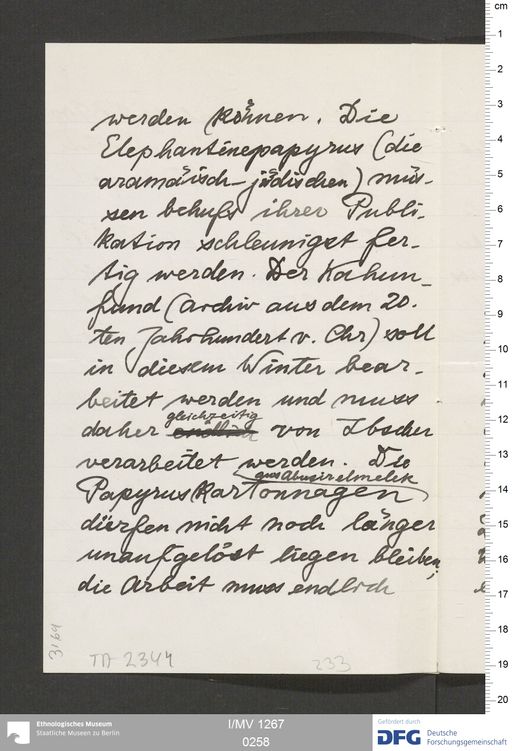 werden können. Die
Elephantinepapyrus (die
aramäisch-jüdischen) müs-
sen behufs ihrer Publi-
kation schleunigst fer-
tig werden. Der Kahun-
fund (Archiv aus dem 20.
ten Jahrhundert v. Chr) soll
in diesem Winter bear-
beitet werden und muss
gleichzeitig
daher endlich von Ibscher
verarbeitet werden. Die
aus Abusir el melek
Papyrus Kartonnagen
dürfen nicht noch länger
unaufgelöst liegen bleiben,
die Arbeit muss endlich
3169
TA 2344
233
cm
1
2
3
4
5
6
7
8
9
10
11
12
13
14
15
16
17
18
19
20
Ethnologisches Museum
Staatliche Museen zu Berlin
I/MV 1267
0258
Gefördert durch
DFG Deutsche
Forschungsgemeinschaft